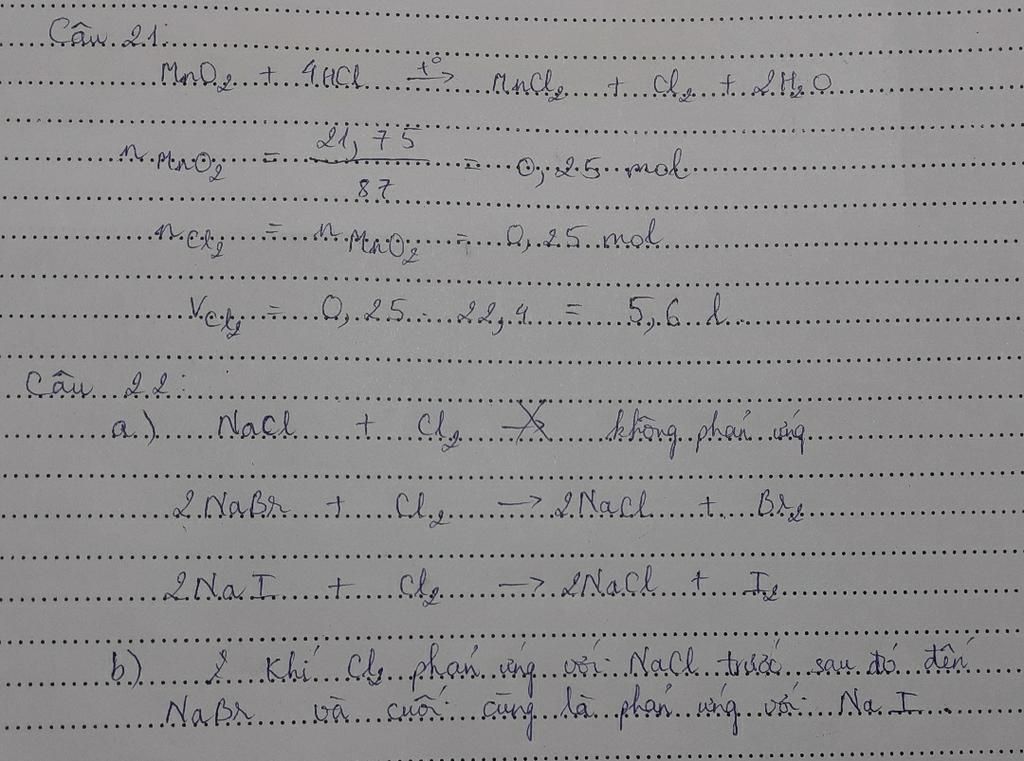 Câu 2.1:
MnO₂ + 4HCl →(t°) MnCl₂ + Cl₂ + 2H₂O
n MnO₂ = 21,75 / 87 = 0,25 mol
n Cl₂ = n MnO₂ = 0,25 mol
V Cl₂ = 0,25 . 22,4 = 5,6 l
Câu 2.2:
a.) NaCl + Cl₂ ↛ không phản ứng
2NaBr + Cl₂ → 2NaCl + Br₂
2NaI + Cl₂ → 2NaCl + I₂
b) 2 Khí Cl₂ phản ứng với NaCl trước sau đó đến
NaBr và cuối cùng là phản ứng với NaI